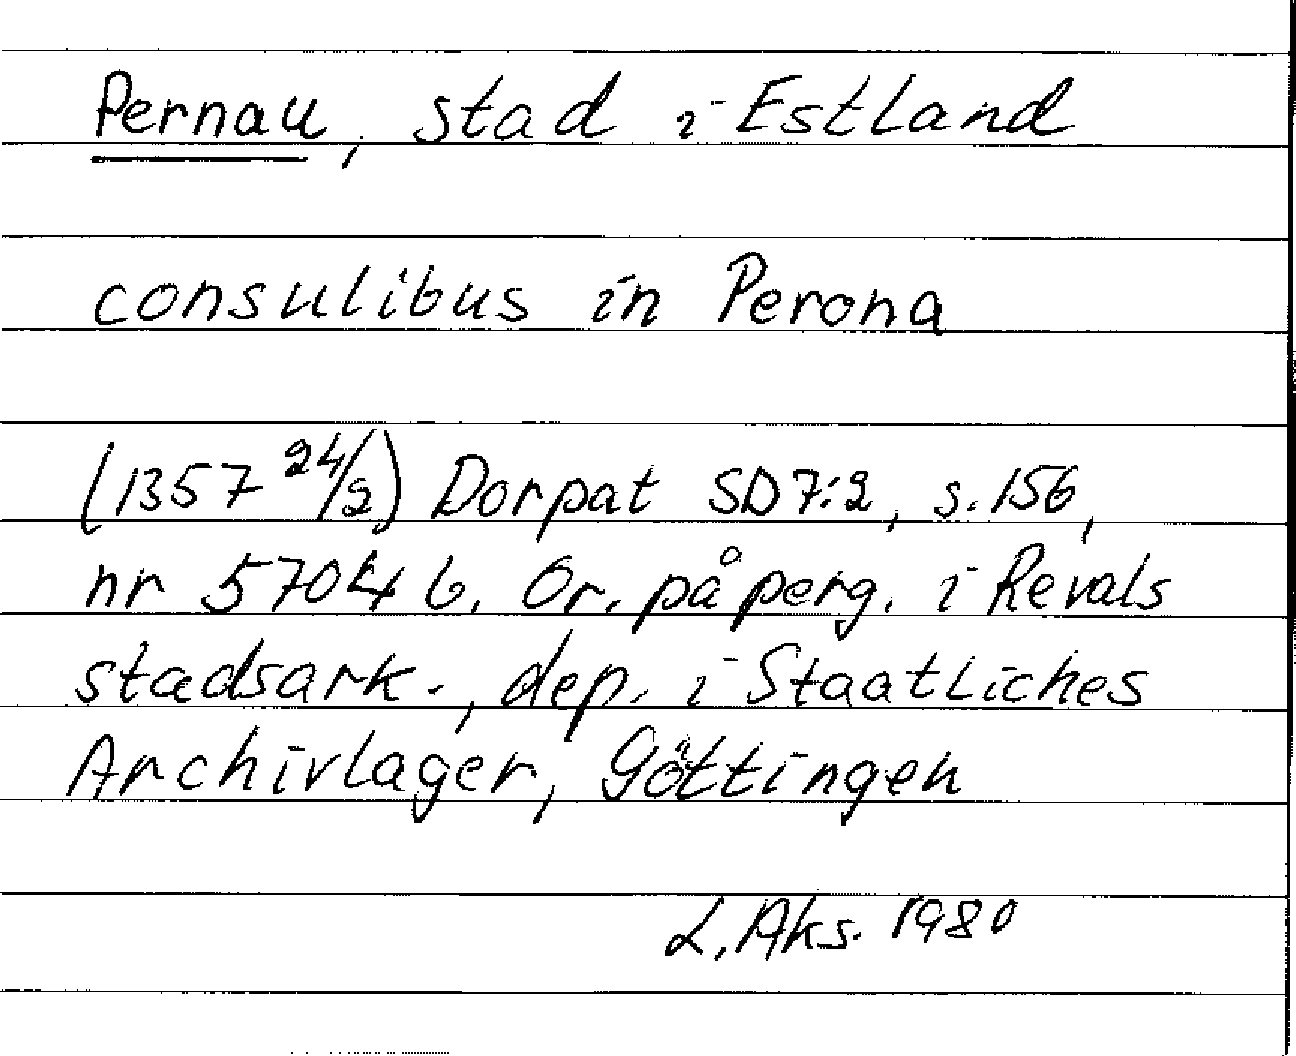 Pernau, stad i Estland
consulibus in Perona
(1357 24/2) Dorpat SD 7:2, s. 156,
nr 5704 b. Or. på perg. i Revals
stadsark., dep. i Staatliches
Archivlager, Göttingen
L. Aks. 1980